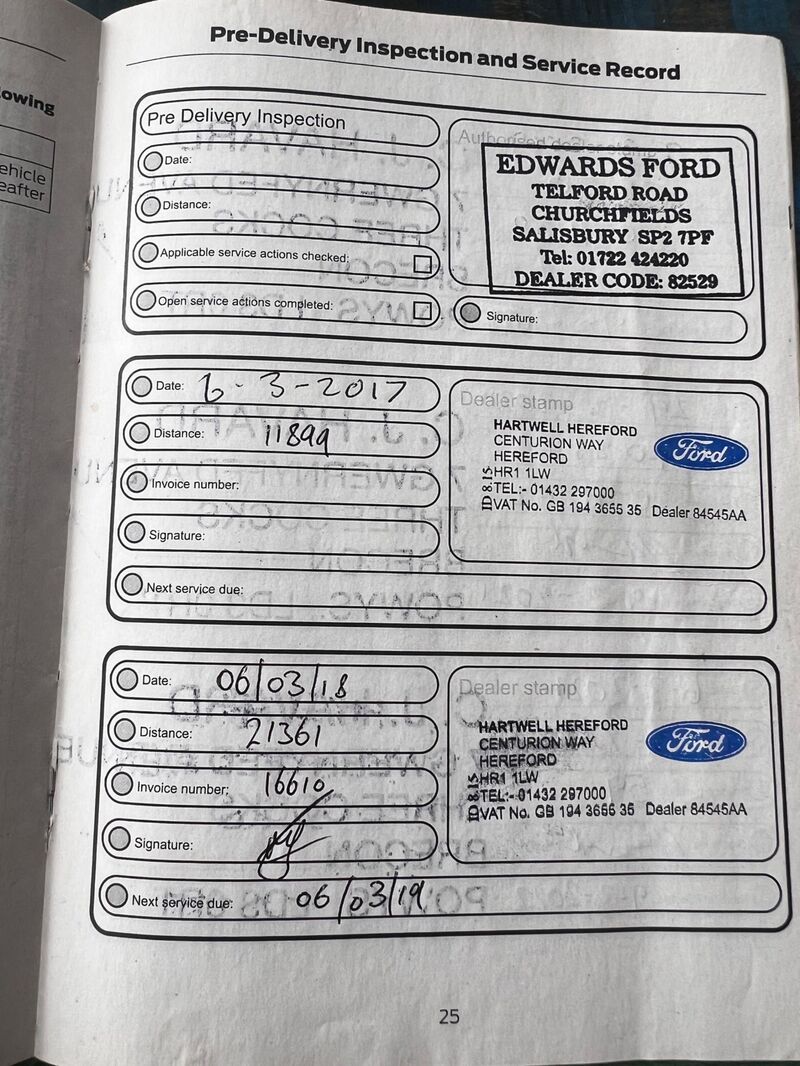 owing
ehicle
eafter
Pre-Delivery Inspection and Service Record
Pre Delivery Inspection
Date:
Distance:
Applicable service actions checked:
Open service actions completed:
Authorised dealer stamp
EDWARDS FORD
TELFORD ROAD
CHURCHFIELDS
SALISBURY SP2 7PF
Tel: 01722 424220
DEALER CODE: 82529
Signature:
Date: 6-3-2017
Distance: 11899
Invoice number:
Signature:
Next service due:
Dealer stamp
HARTWELL HEREFORD
CENTURION WAY
HEREFORD
HR1 1LW
TEL:- 01432 297000
VAT No. GB 194 3655 35 Dealer 84545AA
Ford
Date: 06/03/18
Distance: 21361
Invoice number: 16610
Signature:
Next service due: 06/03/19
Dealer stamp
HARTWELL HEREFORD
CENTURION WAY
HEREFORD
HR1 1LW
TEL:- 01432 297000
VAT No. GB 194 3655 35 Dealer 84545AA
Ford
25